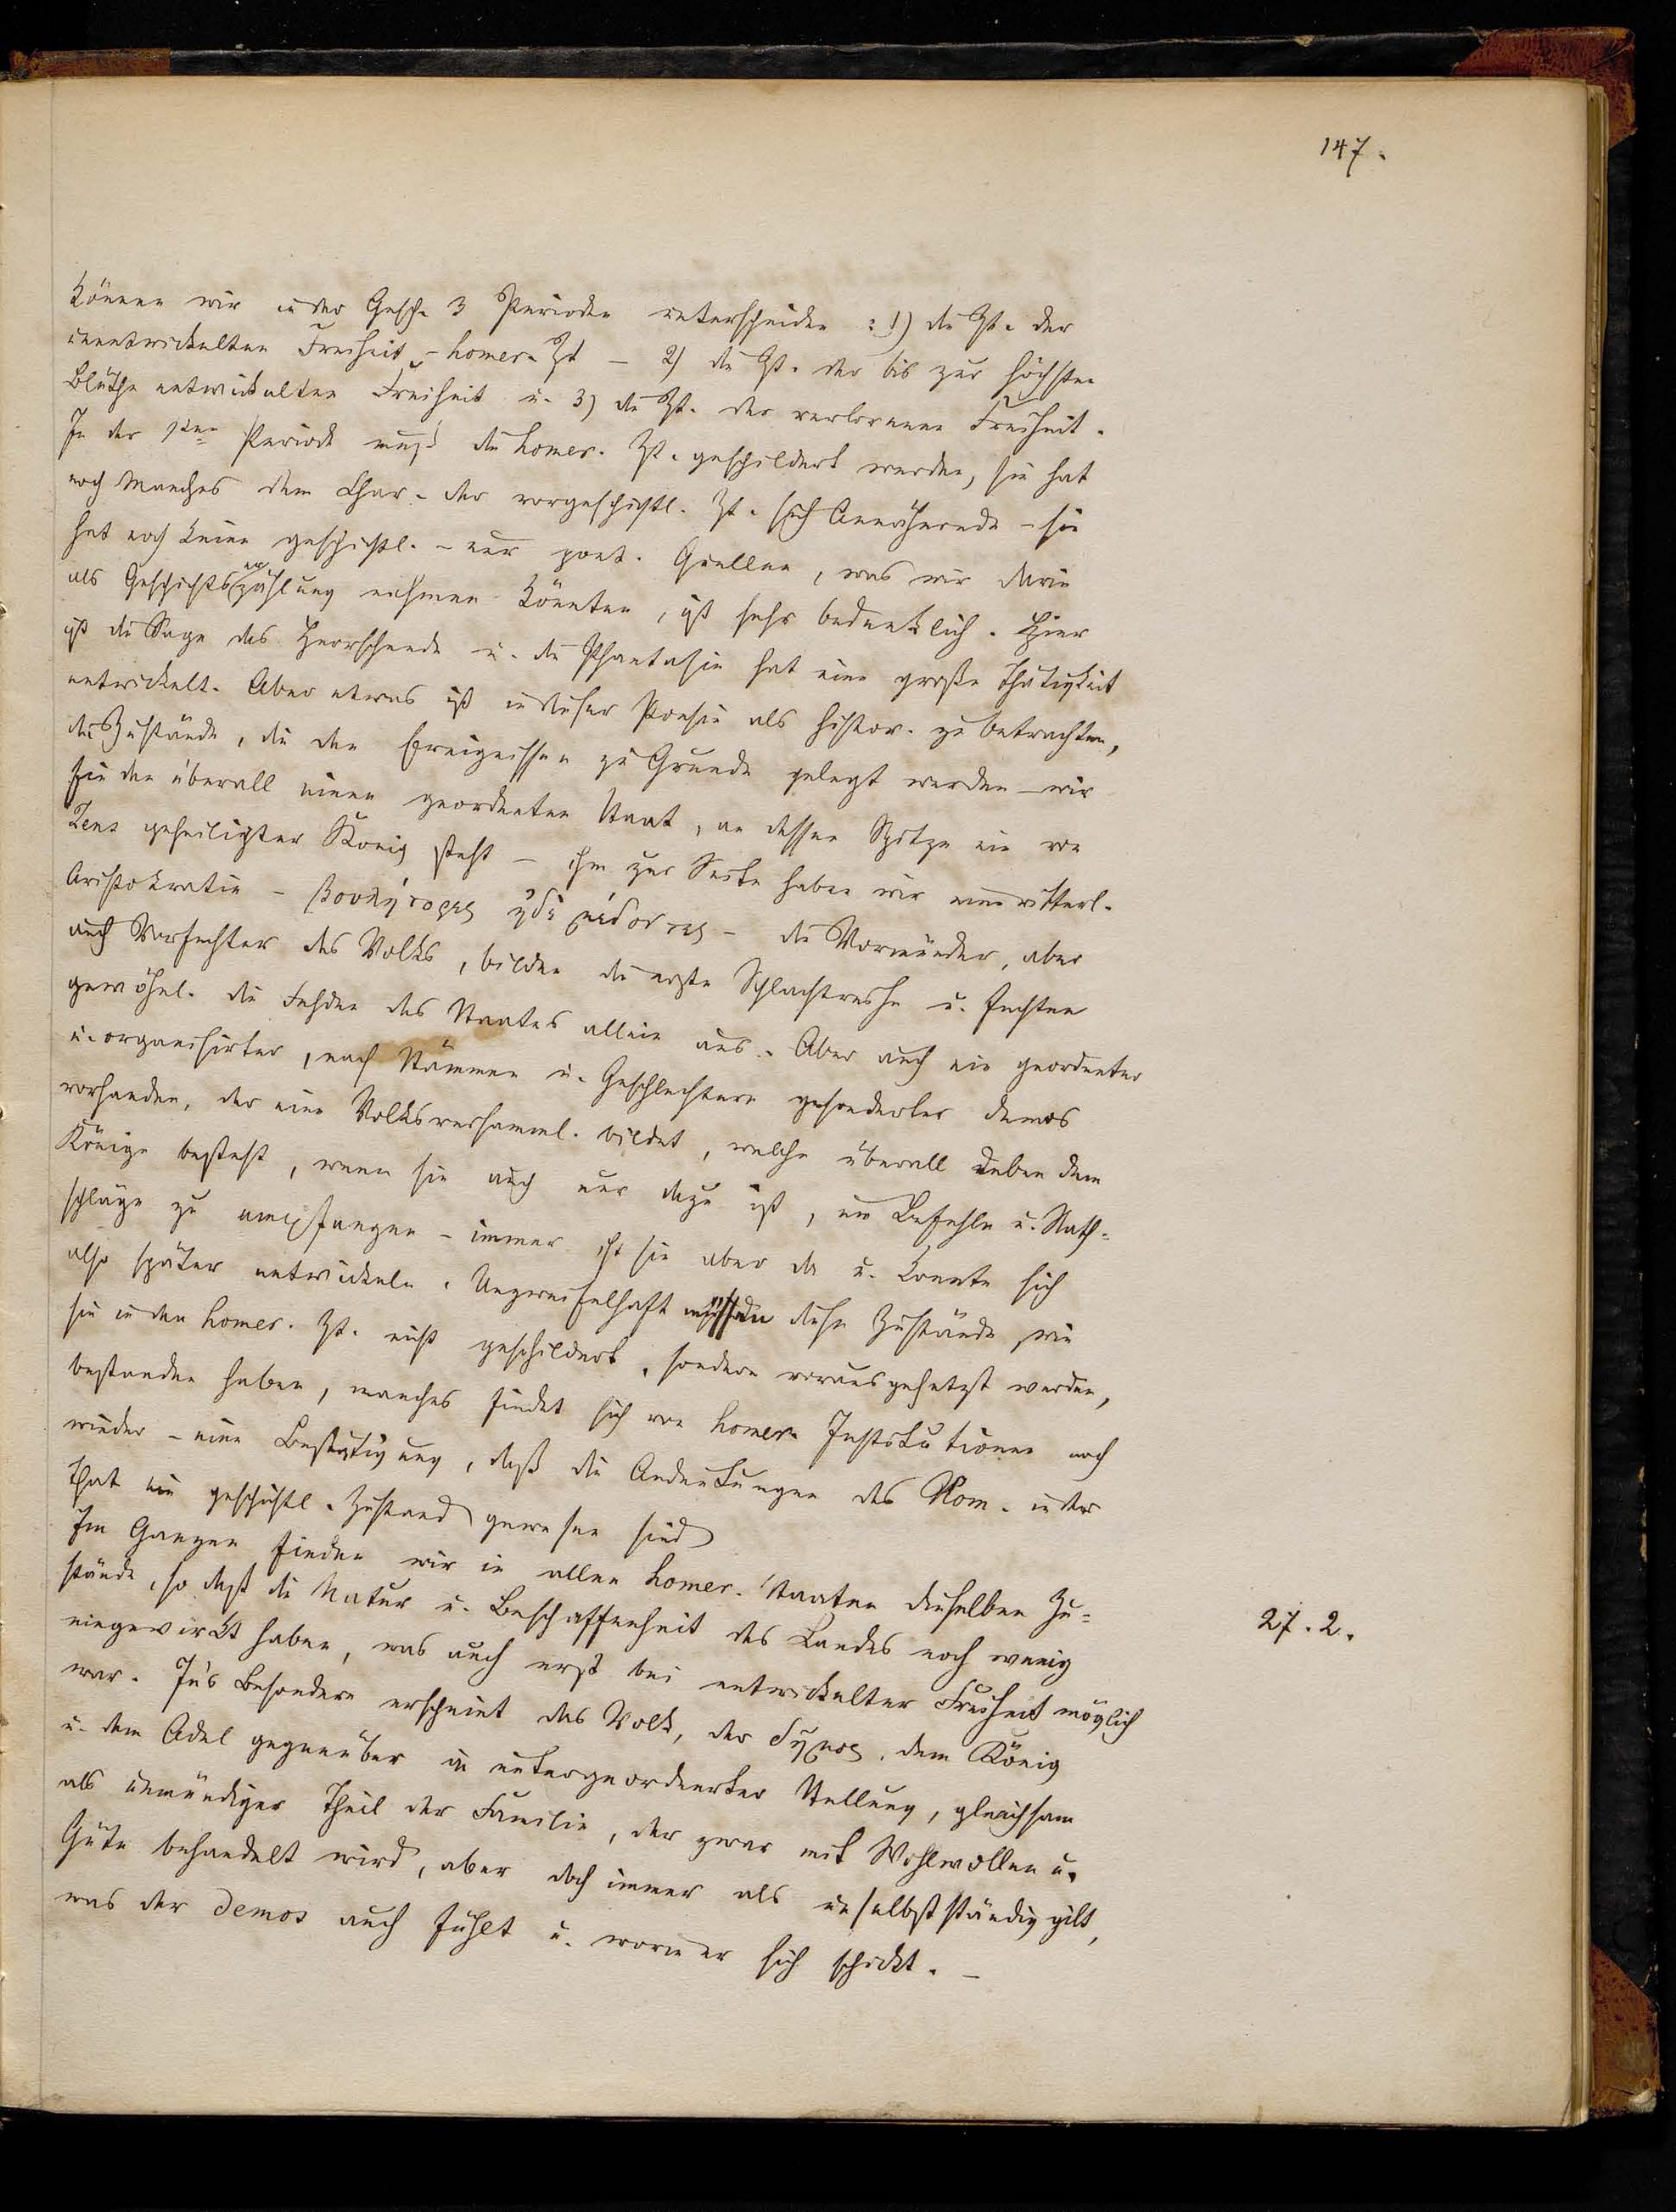 147.
können wir in der Gesch. 3 Perioden unterscheiden : 1) die Zt. der
unentwickelten Freiheit - homer. Zt - 2) die Zt. der bis zur höchsten
Blüthe entwickelten Freiheit u. 3) die Zt. der verlorenen Freiheit.
In der 1ten Periode muß die homer. Zt. geschildert werden, sie hat
noch Manches dem Char. der vorgeschichtl. Zt. sich Annähernde - sie
hat noch keine geschichtl. - nur poet. Quellen, was wir darin
als Geschichtserzählung nehmen könnten, ist sehr bedenklich. Hier
ist die Sage das Herrschende u. die Phantasie hat eine große Thätigkeit
entwickelt. Aber etwas ist in dieser Poesie als histor. zu betrachten,
die Zustände, die den Ereignissen zu Grunde gelegt werden - wir
finden überall einen geordneten Staat, an dessen Spitze ein von
Zeus geheiligter König steht - ihm zur Seite haben wir eine ritterl.
Aristokratie - βουλήτορες ἠδὲ μέδοντες - die Vormünder, aber
auch Verfechter des Volks, bilden die erste Schlachtreihe u. fechten
gewöhnl. die Fehden des Staates allein aus. Aber auch ein geordneter
u. organisirter, nach Stämmen u. Geschlechtern gesonderter demos
vorhanden, der eine Volksversamml. bildet, welche überall neben dem
Könige besteht, wenn sie auch nur dazu ist, um Befehle u. Rath=
schläge zu empfangen - immer ist sie aber da u. konnte sich
also später entwickeln. Unzweifelhaft müssen diese Zustände, wie
sie in den homer. Zt. nicht geschildert, sondern vorausgesetzt werden,
bestanden haben, manches findet sich von homer. Institutionen noch
wieder - eine Bestätigung, daß die Andeutungen des Hom. in der
That ein geschichtl. Zustand gewesen sind
Im Ganzen finden wir in allen homer. Staaten dieselben Zu=
stände, so daß die Natur u. Beschaffenheit des Landes noch wenig
27. 2.
eingewirkt haben, was auch erst bei entwickelter Freiheit möglich
war. Ins Besondere erscheint das Volk, der δῆμος, dem König
u. dem Adel gegenüber in untergeordneter Stellung, gleichsam
als unmündiger Theil der Familie, der zwar mit Wohlwollen u.
Güte behandelt wird, aber doch immer als unselbstständig gilt,
was der demos auch fühlt u. worin er sich schickt. -